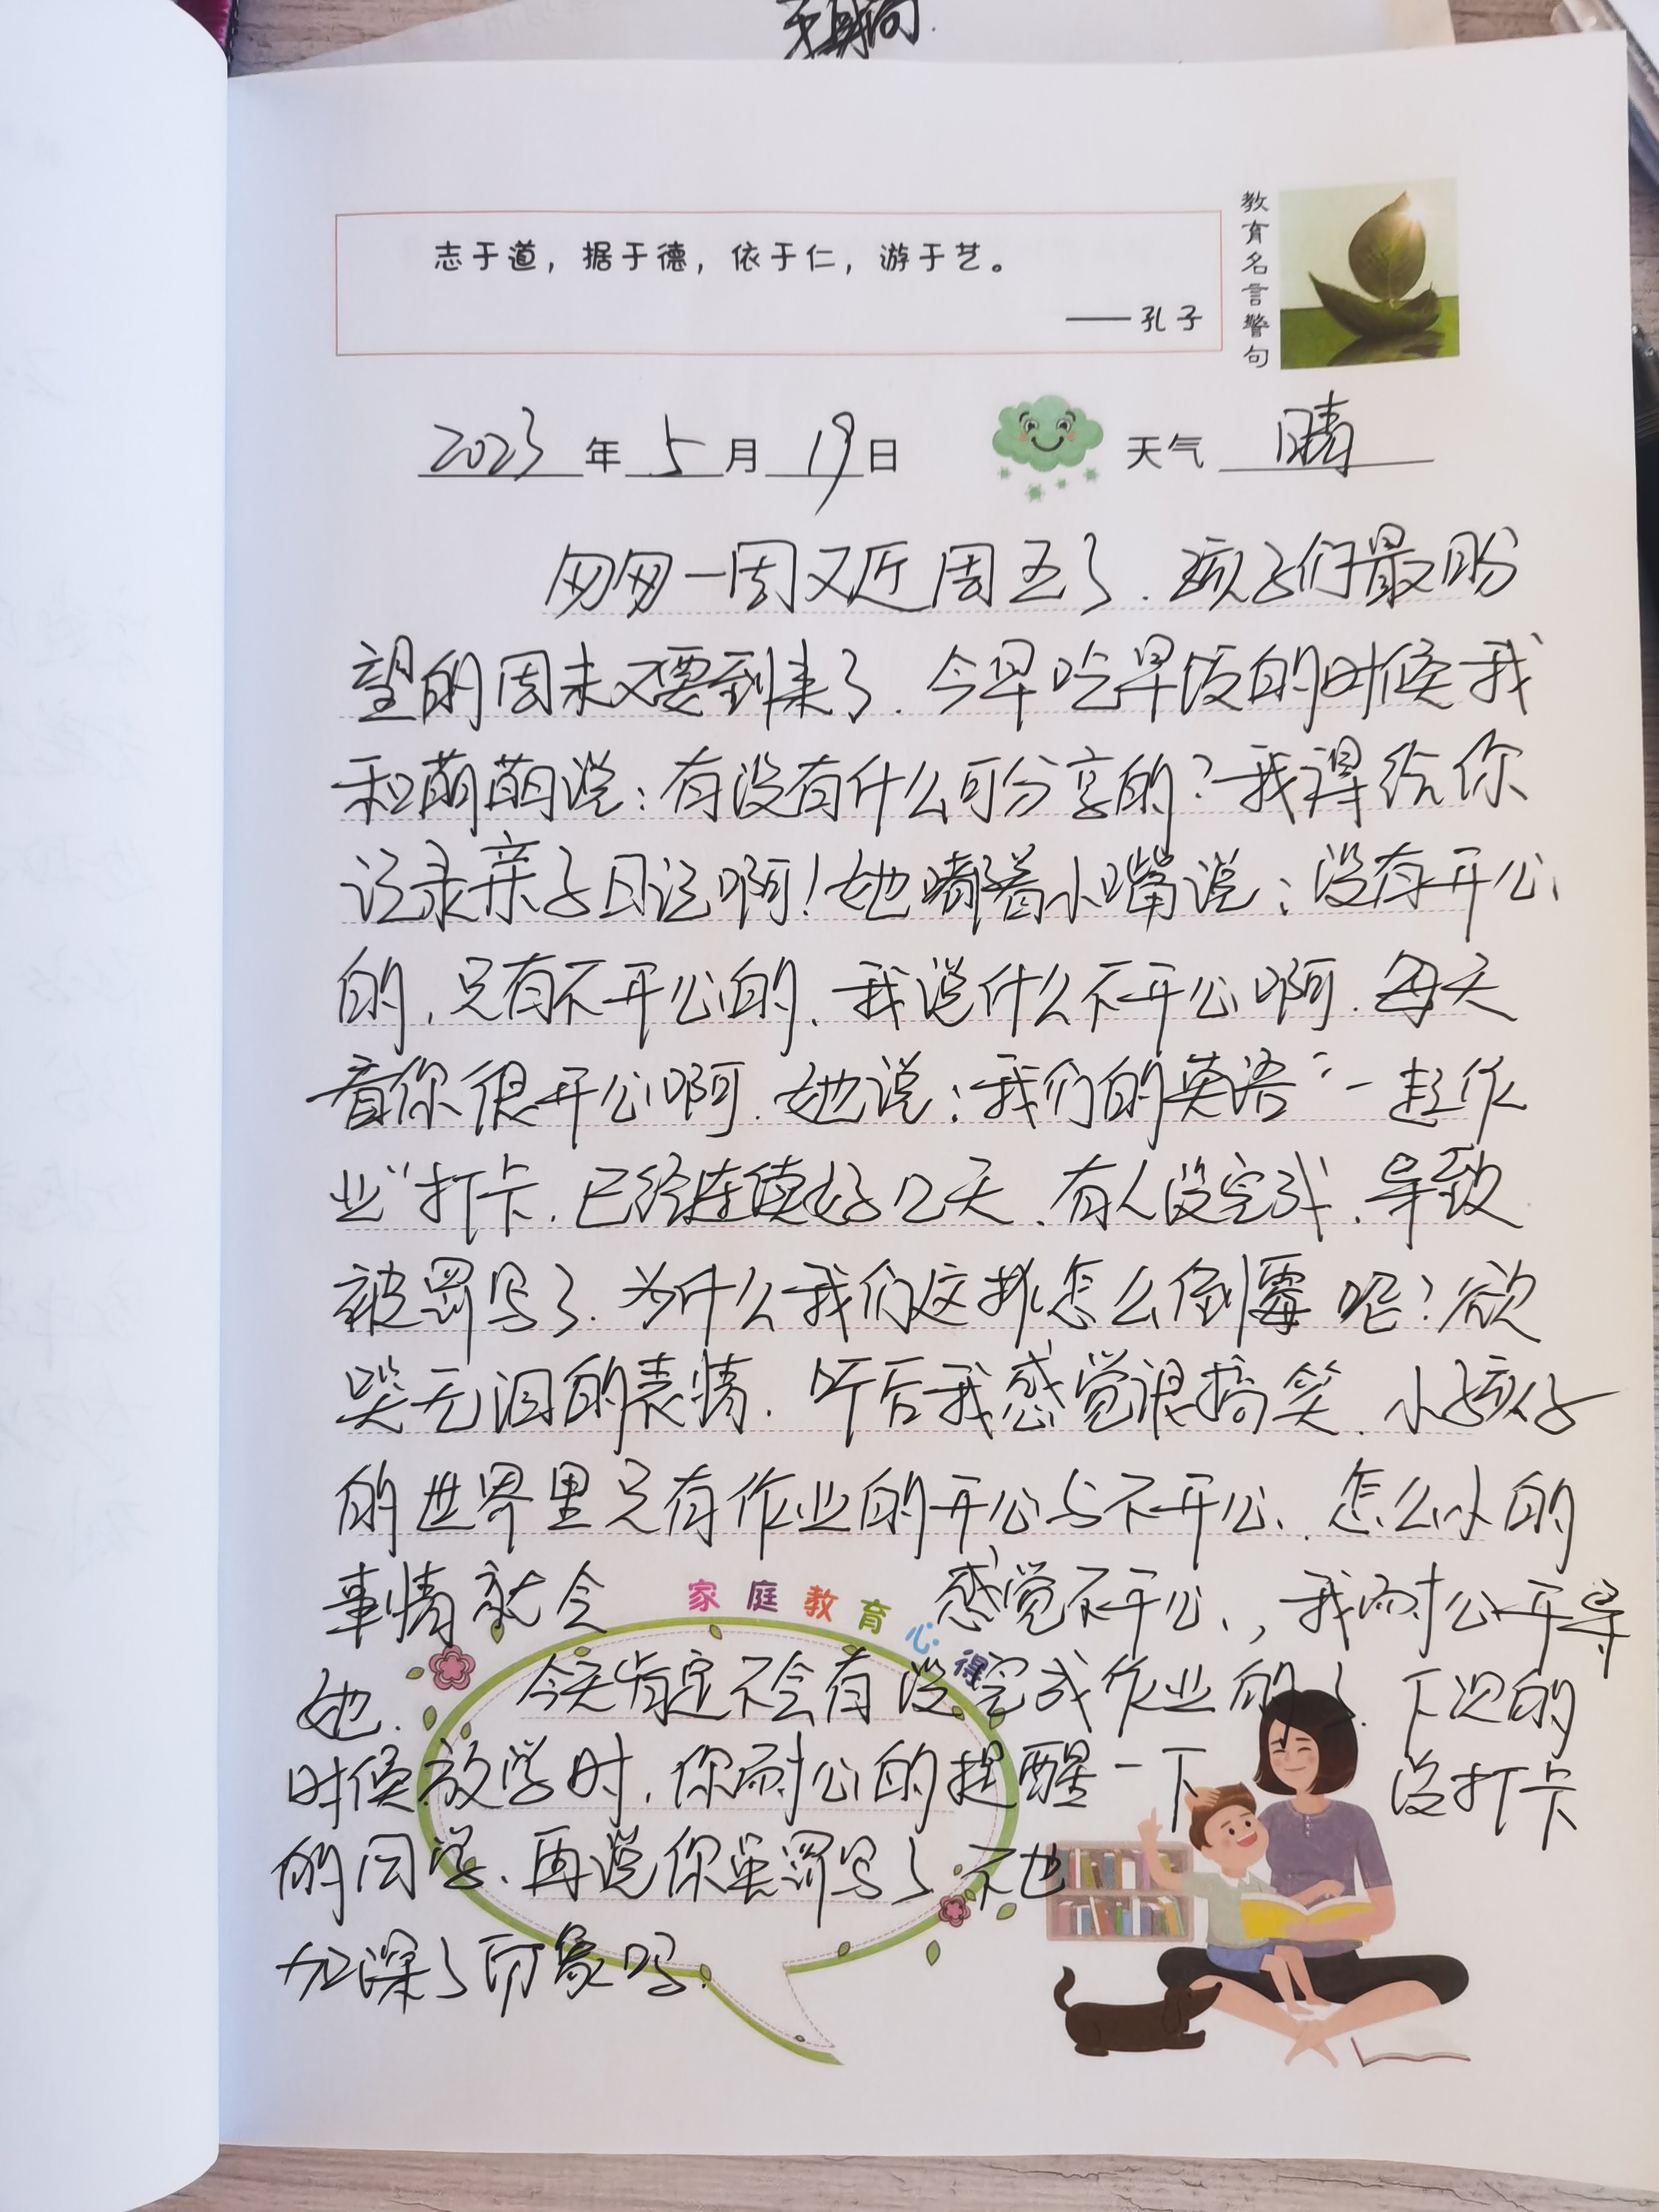 志于道，据于德，依于仁，游于艺。
——孔子
教育名言警句
2023年5月19日 天气 晴
匆匆一周又近周五了.孩子们最盼
望的周末又要到来了.今早吃早饭的时候我
和萌萌说：有没有什么可分享的？我得给你
记录亲子日记啊！她嘟着小嘴说：没有开心
的,只有不开心的、我说什么不开心啊.每天
看你很开心啊.她说：我们的英语“一起作
业”打卡.已经连续好几天、有人没完成、导致
被罚写了.为什么我们这排怎么倒霉呢？欲
哭无泪的表情.听后我感觉很搞笑、小孩子
的世界里只有作业的开心与不开心、怎么小的
事情就会 感觉不开心，我耐心开导
家庭教育心得
她. 今天肯定不会有没完成作业的了.下次的
时候放学时.你耐心的提醒一下 没打卡
的同学、再说你虽罚写了不也
加深了印象吗.